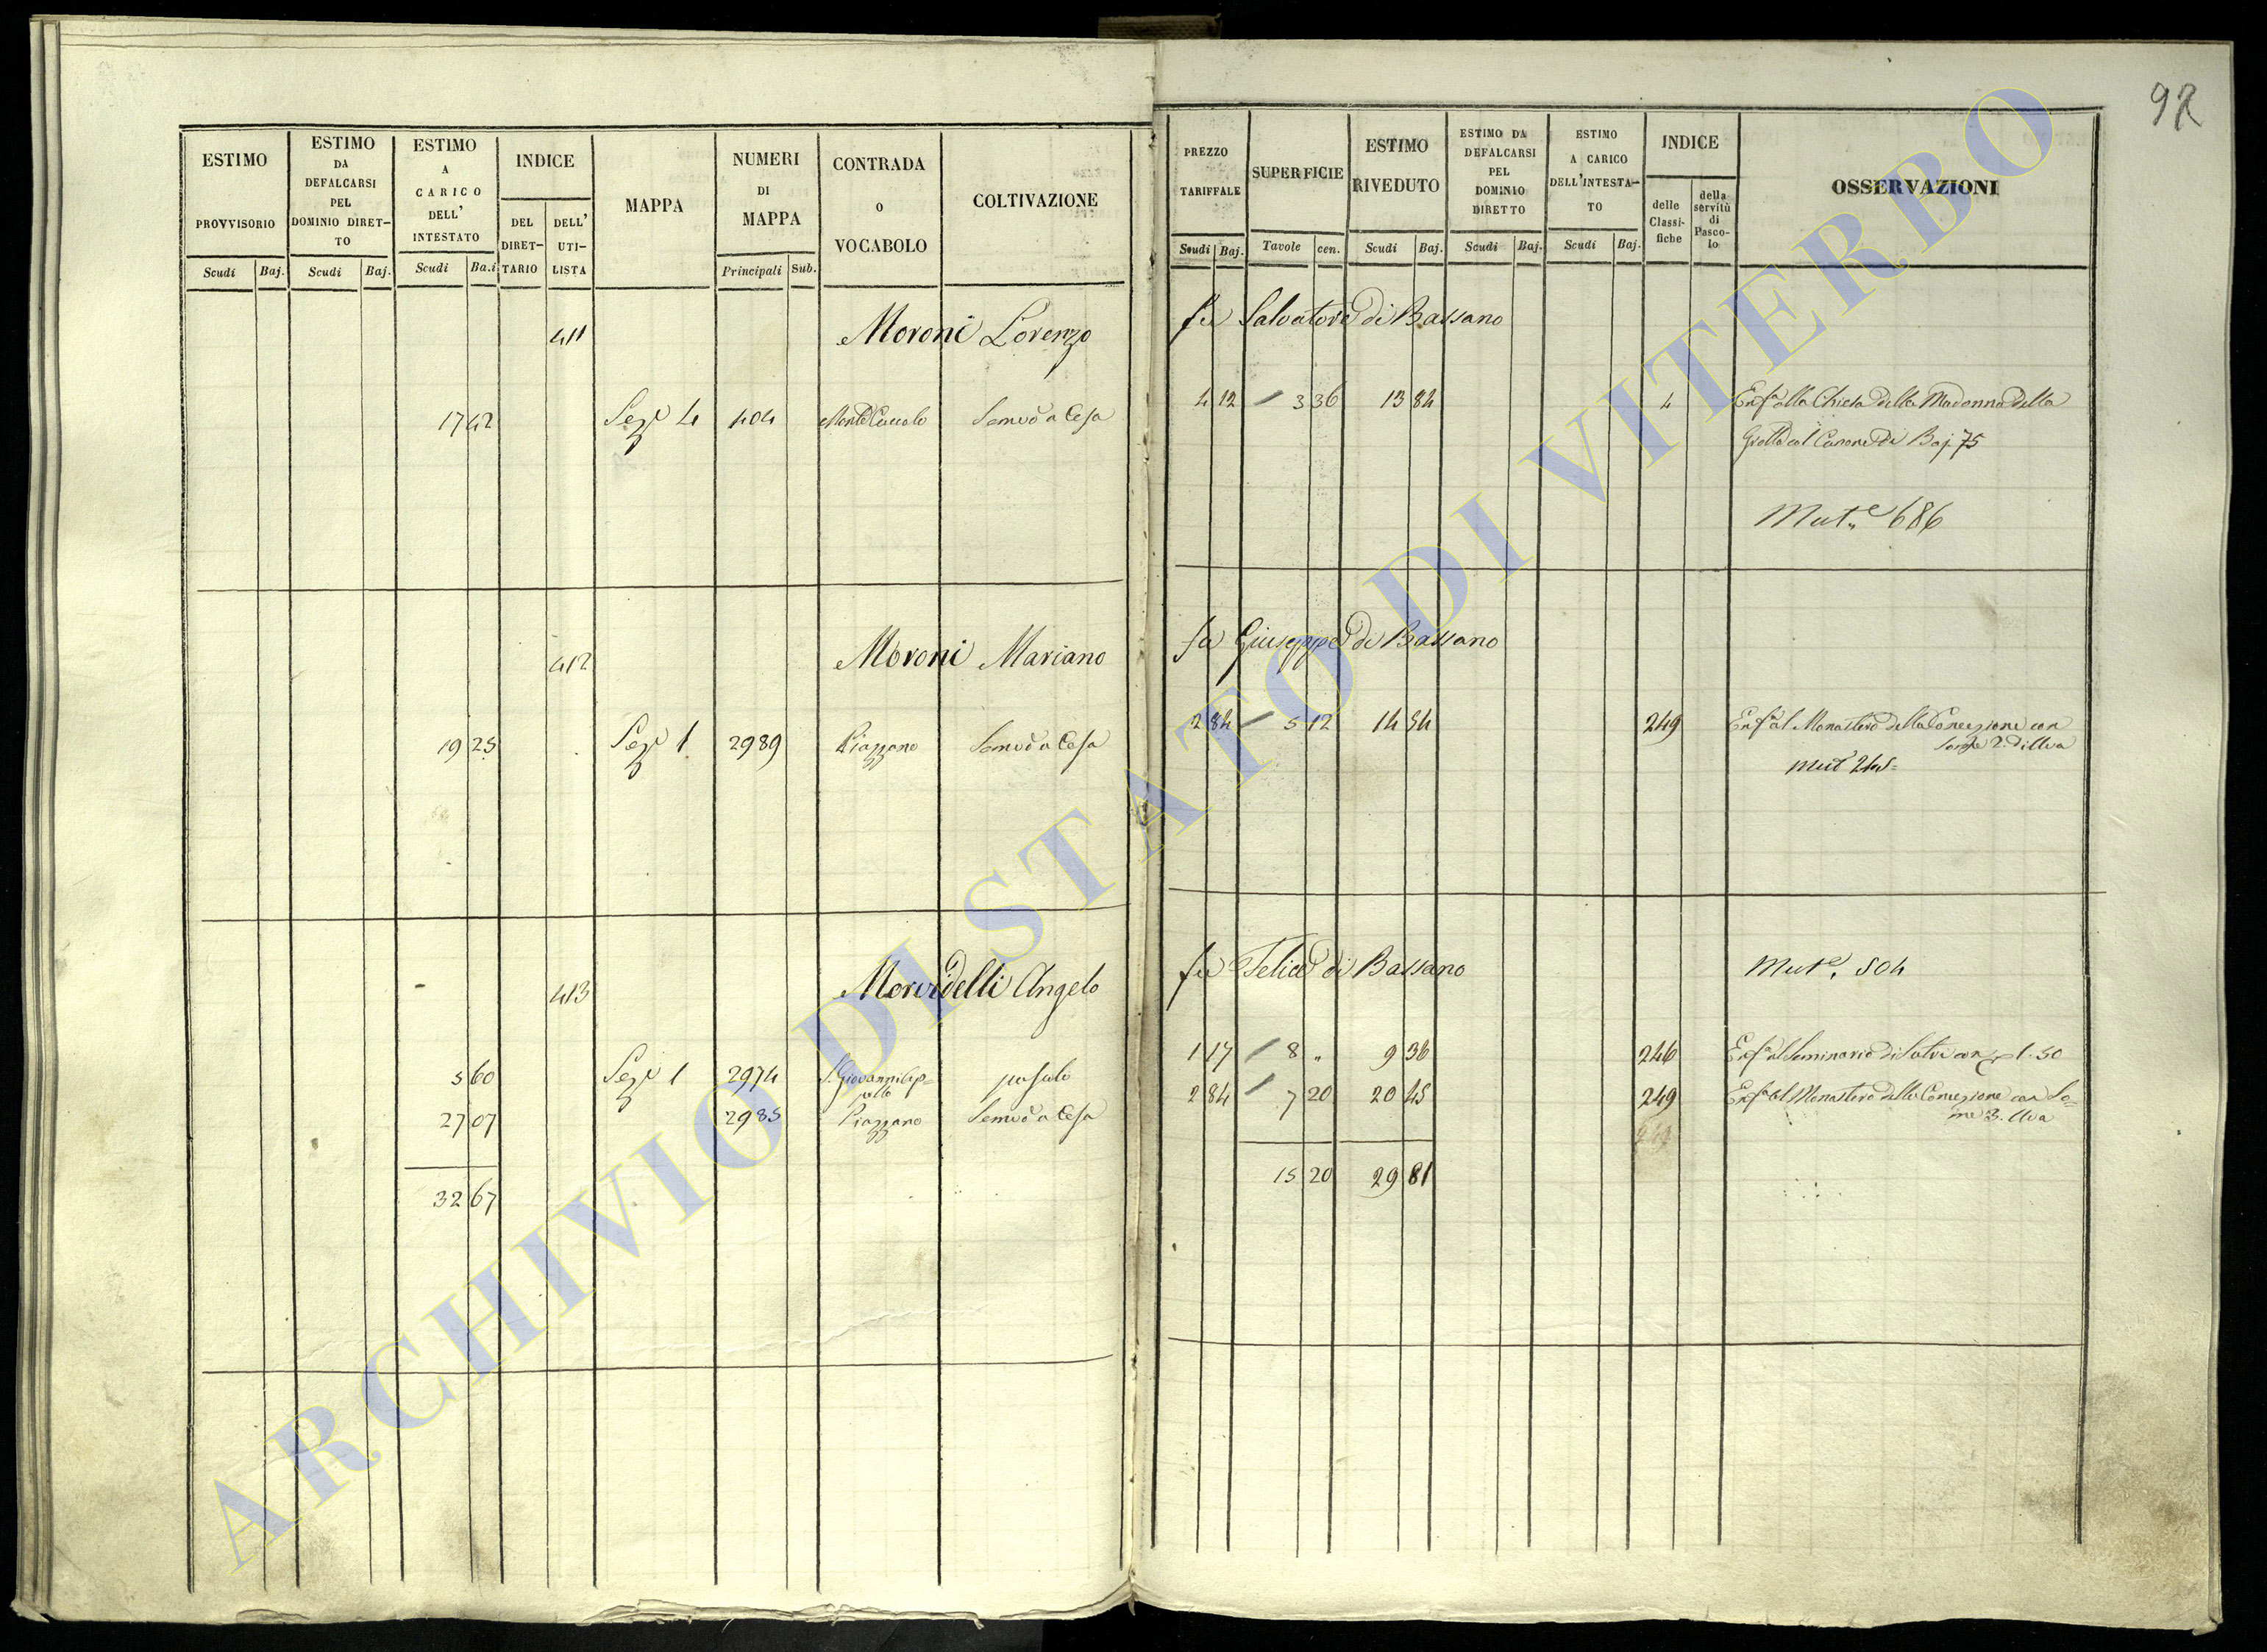 92
ESTIMO PROVVISORIO
Scudi Baj.
ESTIMO DA DEFALCARSI PEL DOMINIO DIRET- TO
Scudi Baj.
ESTIMO A CARICO DELL' INTESTATO
Scudi Ba.i
INDICE
DEL DIRET- TARIO
DELL' UTI- LISTA
MAPPA
NUMERI DI MAPPA
Principali Sub.
CONTRADA O VOCABOLO
COLTIVAZIONE
PREZZO TARIFFALE
Scudi Baj.
SUPERFICIE
Tavole cen.
ESTIMO RIVEDUTO
Scudi Baj.
ESTIMO DA DEFALCARSI PEL DOMINIO DIRETTO
Scudi Baj.
ESTIMO A CARICO DELL'INTESTA- TO
Scudi Baj.
INDICE
delle Classi- fiche
della servitù di Pasco- lo
OSSERVAZIONI
411 Moroni Lorenzo fu Salvatore di Bassano
17 42 Sez.e 4 404 Monte Cuccolo Semvo a Cesa 4 12 3 36 13 84 4 Enfa alla Chiesa della Madonna della
Grotta col Canone di Baj. 75
Mut.e 686
412 Moroni Mariano fu Giuseppe di Bassano
19 25 Sez.e 1 2989 Piazzano Semvo a Cesa 2 84 5 12 14 54 249 Enfa al Monastero della Concezione con
Some 2. di Uva
413 Morvidelli Angelo fu Felice di Bassano Mut.e 504
5 60 Sez.e 1 2974 S. Giovanni pascolo 1 17 8 „ 9 36 246 Enfa al Seminario di Sutri con 1.50
27 07 2985 Piazzano Semvo a Cesa 2 84 7 20 20 45 249 Enfa al Monastero della Concezione con So=
me 3. Uva
32 67 15 20 29 81
ARCHIVIO DI STATO DI VITERBO